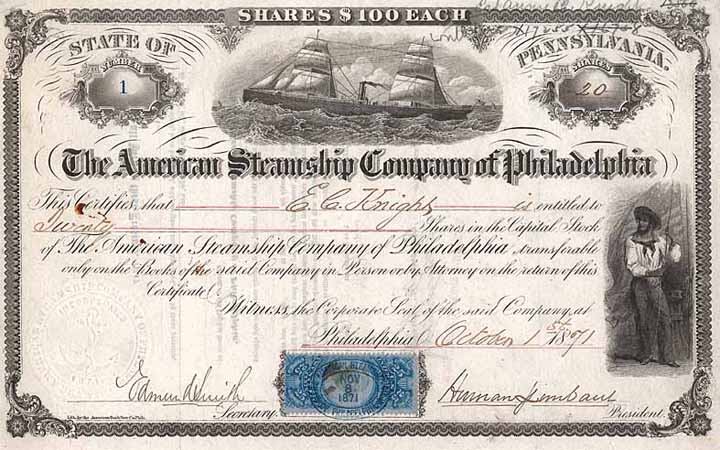 SHARES $100 EACH
STATE OF PENNSYLVANIA.
NUMBER
1
SHARES
20
The American Steamship Company of Philadelphia
This Certifies, that E. C. Knight is entitled to
Twenty Shares in the Capital Stock
of The American Steamship Company of Philadelphia transferable
only on the Books of the said Company in Person or by Attorney on the return of this
Certificate.
Witness, the Corporate Seal of the said Company, at
Philadelphia October 1st 1871
NOV
1871
Edmund Smith
Secretary.
Herman
President.